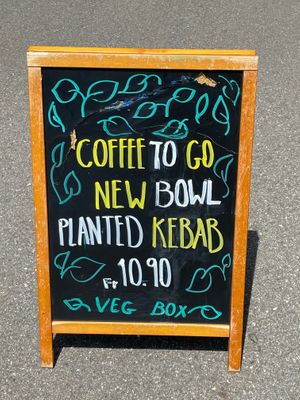 COFFEE TO GO
NEW BOWL
PLANTED KEBAB
Fr 10.90
VEG BOX